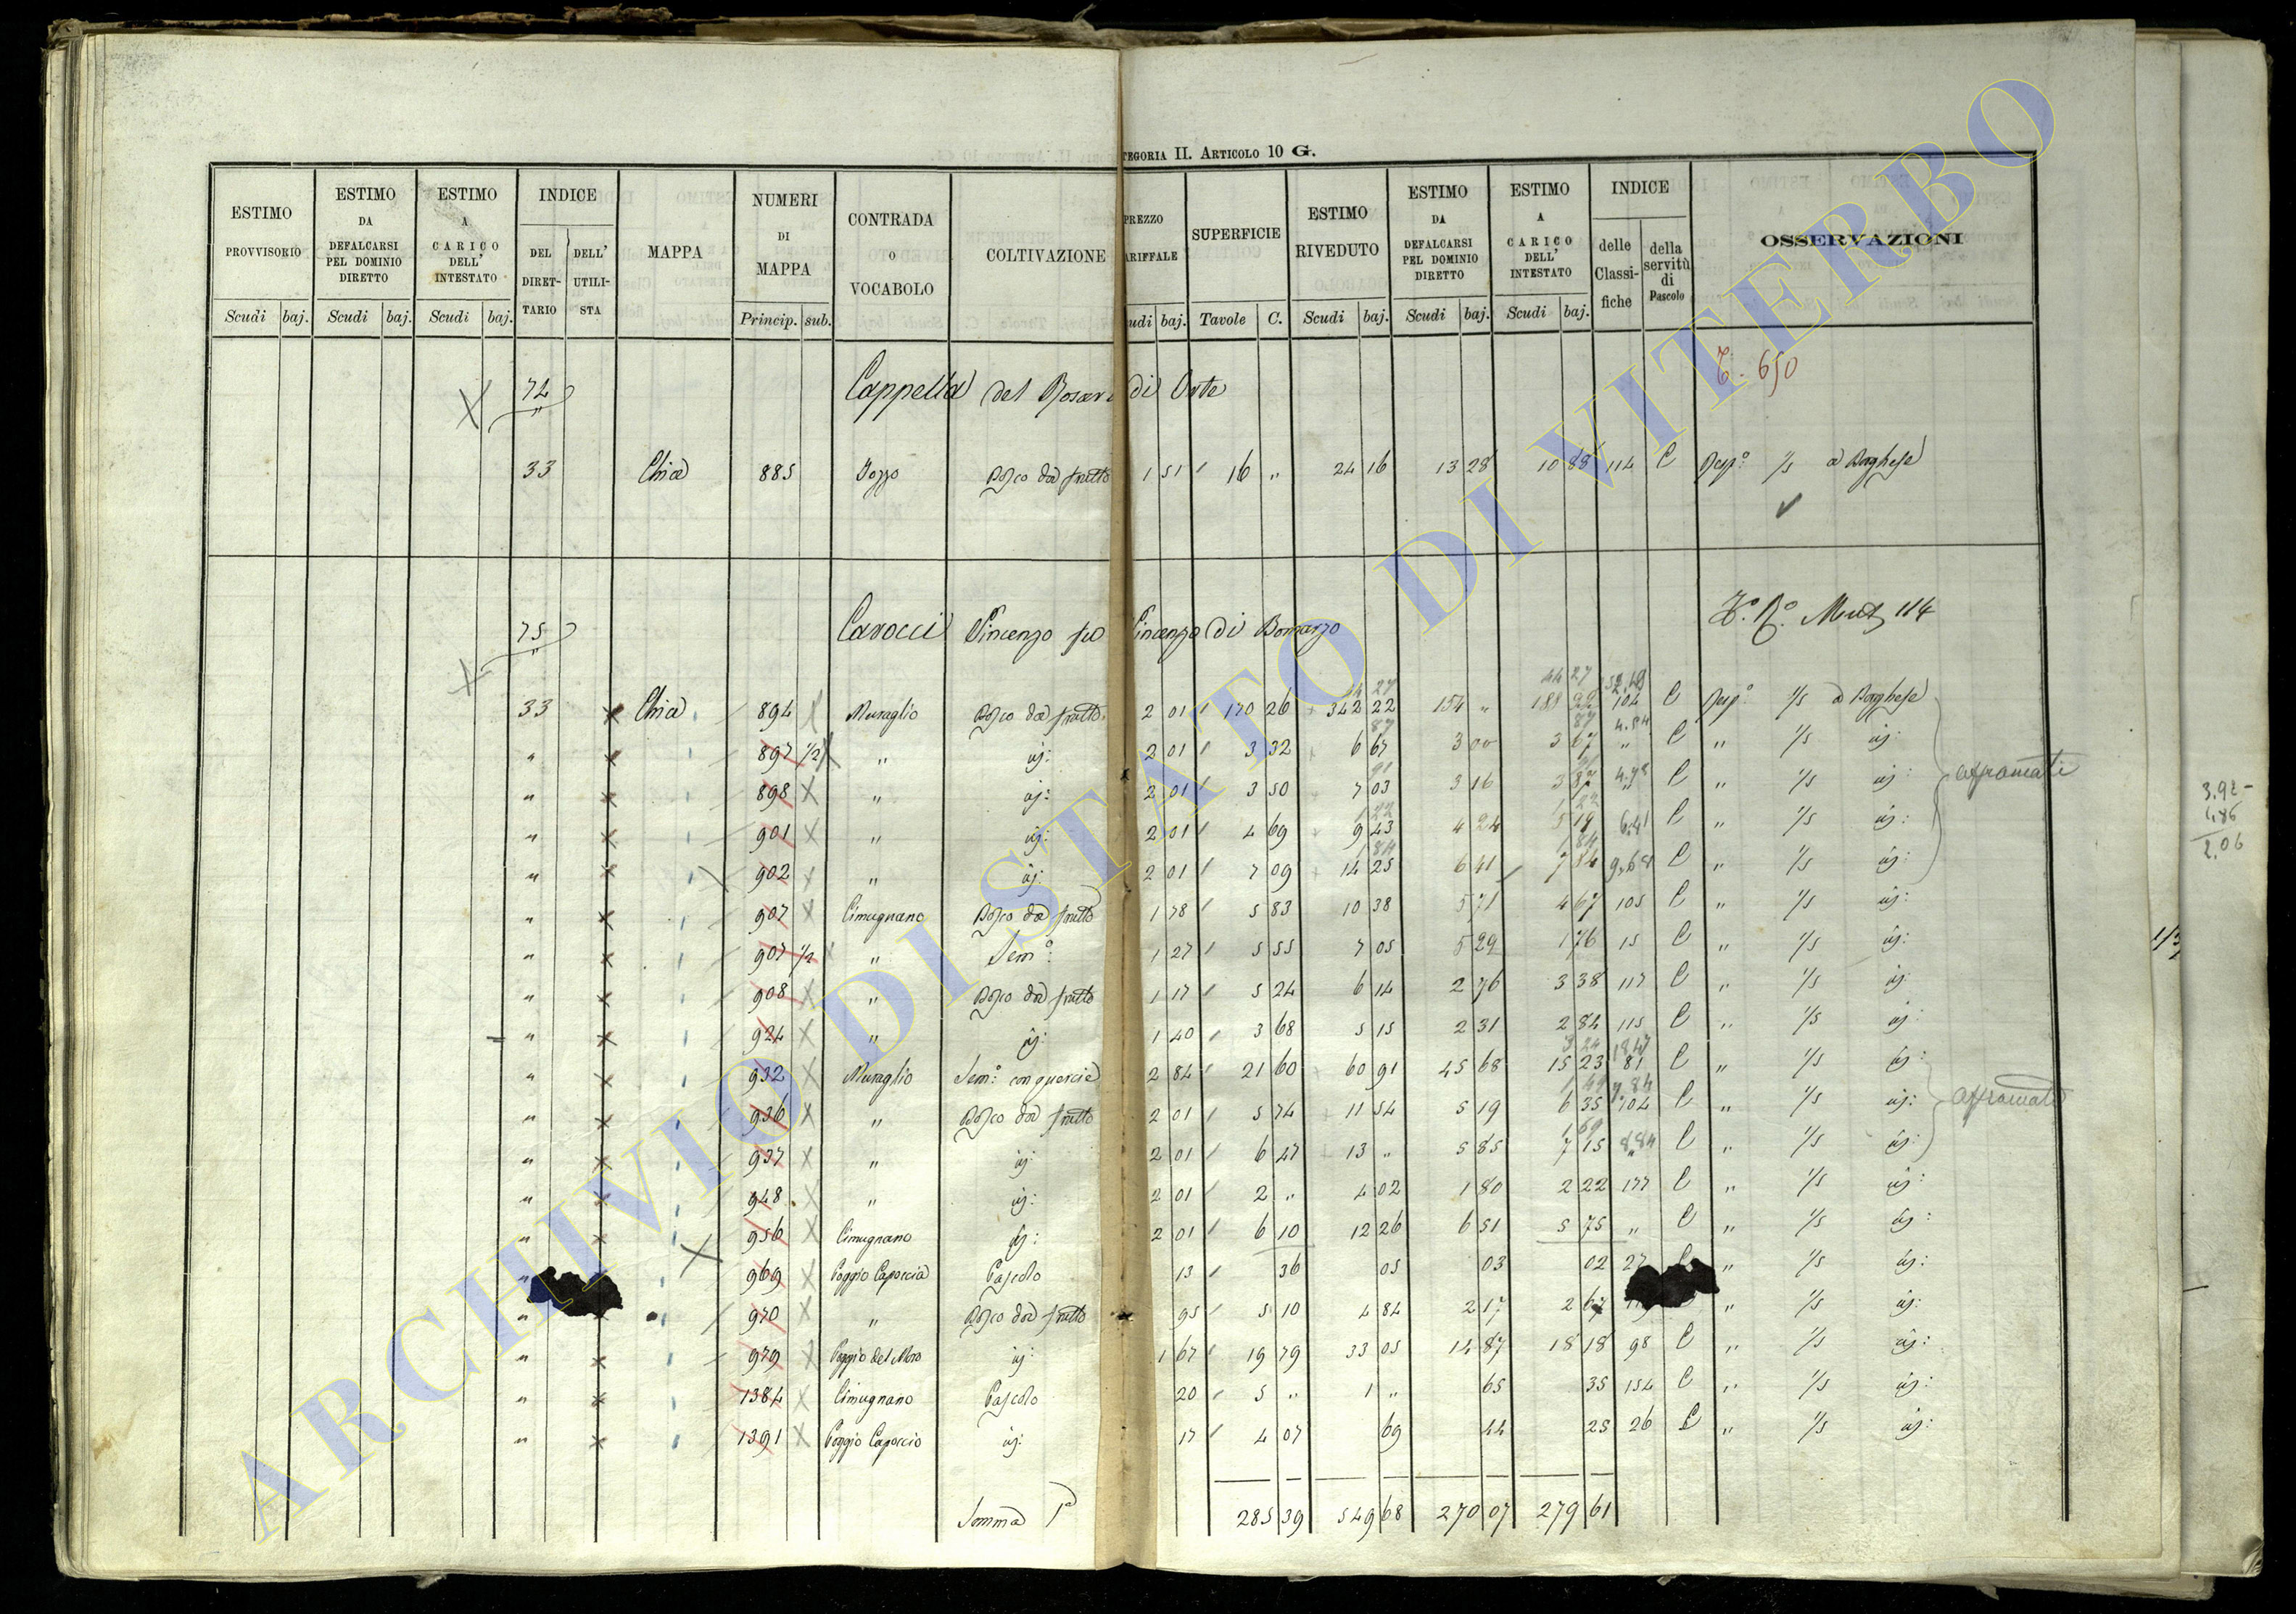 TEGORIA II. ARTICOLO 10 G.
ESTIMO PROVVISORIO | ESTIMO DA DEFALCARSI PEL DOMINIO DIRETTO | ESTIMO A CARICO DELL' INTESTATO | INDICE | MAPPA | NUMERI DI MAPPA | CONTRADA O VOCABOLO | COLTIVAZIONE | PREZZO ARIFFALE | SUPERFICIE | ESTIMO RIVEDUTO | ESTIMO DA DEFALCARSI PEL DOMINIO DIRETTO | ESTIMO A CARICO DELL' INTESTATO | INDICE | OSSERVAZIONI
DEL DIRET-TARIO | DELL' UTILI-STA | delle Classi-fiche | della servitù di Pascolo
Scudi | baj. | Scudi | baj. | Scudi | baj. | Princip. | sub. | udi | baj. | Tavole | C. | Scudi | baj. | Scudi | baj. | Scudi | baj.
T. 650
72 Cappella del Rosar di Orte
33 Chia 885 Pozzo Bosco da frutto 1 51 16 " 24 16 13 28 10 88 114 C Risp:o 1/5 a Borghese
75 Carocci Vincenzo fu Vincenzo di Bomarzo
114
44 27 44 27
33 Chia 894 Muraglio Bosco da frutto 2 01 170 26 342 22 154 " 188 22 104 C Risp:o 1/5 a Borghese
87 87 4.54
" 897 1/2 " id: 2 01 3 32 6 67 3 00 3 67 " C " 1/5 id:
91 4.78
" 898 " id: 2 01 3 50 7 03 3 16 3 87 " C " 1/5 id: affrancati
1 22 1 22
" 901 " id: 2 01 4 69 9 43 4 24 5 19 6.41 C " 1/5 id:
1 84 1 84
" 902 " id: 2 01 7 09 14 25 6 41 7 84 9.68 C " 1/5 id:
" 907 Cimugnano Bosco da frutto 1 78 5 83 10 38 5 71 4 67 105 C " 1/5 id:
" 907 1/2 " Sem:o 1 27 5 55 7 05 5 29 1 76 15 C " 1/5 id:
" 908 " Bosco da frutto 1 17 5 24 6 14 2 76 3 38 117 C " 1/5 id:
" 924 " id: 1 40 3 68 5 15 2 31 2 84 115 C " 1/5 id:
" 932 Muraglio Sem:o con quercie 2 84 21 60 60 91 45 68 15 23 81 C " 1/5 id:
1 49 7.84
" 936 " Bosco da frutto 2 01 5 74 11 54 5 19 6 35 104 C " 1/5 id: affrancato
1 69 8.84
" 937 " id: 2 01 6 47 13 " 5 85 7 15 " C " 1/5 id:
" 948 " id: 2 01 2 " 4 02 1 80 2 22 177 C " 1/5 id:
" 956 Cimugnano id: 2 01 6 10 12 26 6 51 5 75 " C " 1/5 id:
" 969 Poggio Capoccia Pascolo 13 36 05 03 02 27 " 1/5 id:
" 970 " Bosco da frutto 95 5 10 4 84 2 17 2 67 " 1/5 id:
" 979 Poggio del Moro id: 1 67 19 79 33 05 14 87 18 18 98 C " 1/5 id:
" 1384 Cimugnano Pascolo 20 5 " 1 " 65 35 154 C " 1/5 id:
" 1391 Poggio Capoccio id: 17 4 07 69 44 25 26 C " 1/5 id:
Somma 1a 285 39 549 68 270 07 279 61
3.92
1.86
2.06
ARCHIVIO DI STATO DI VITERBO